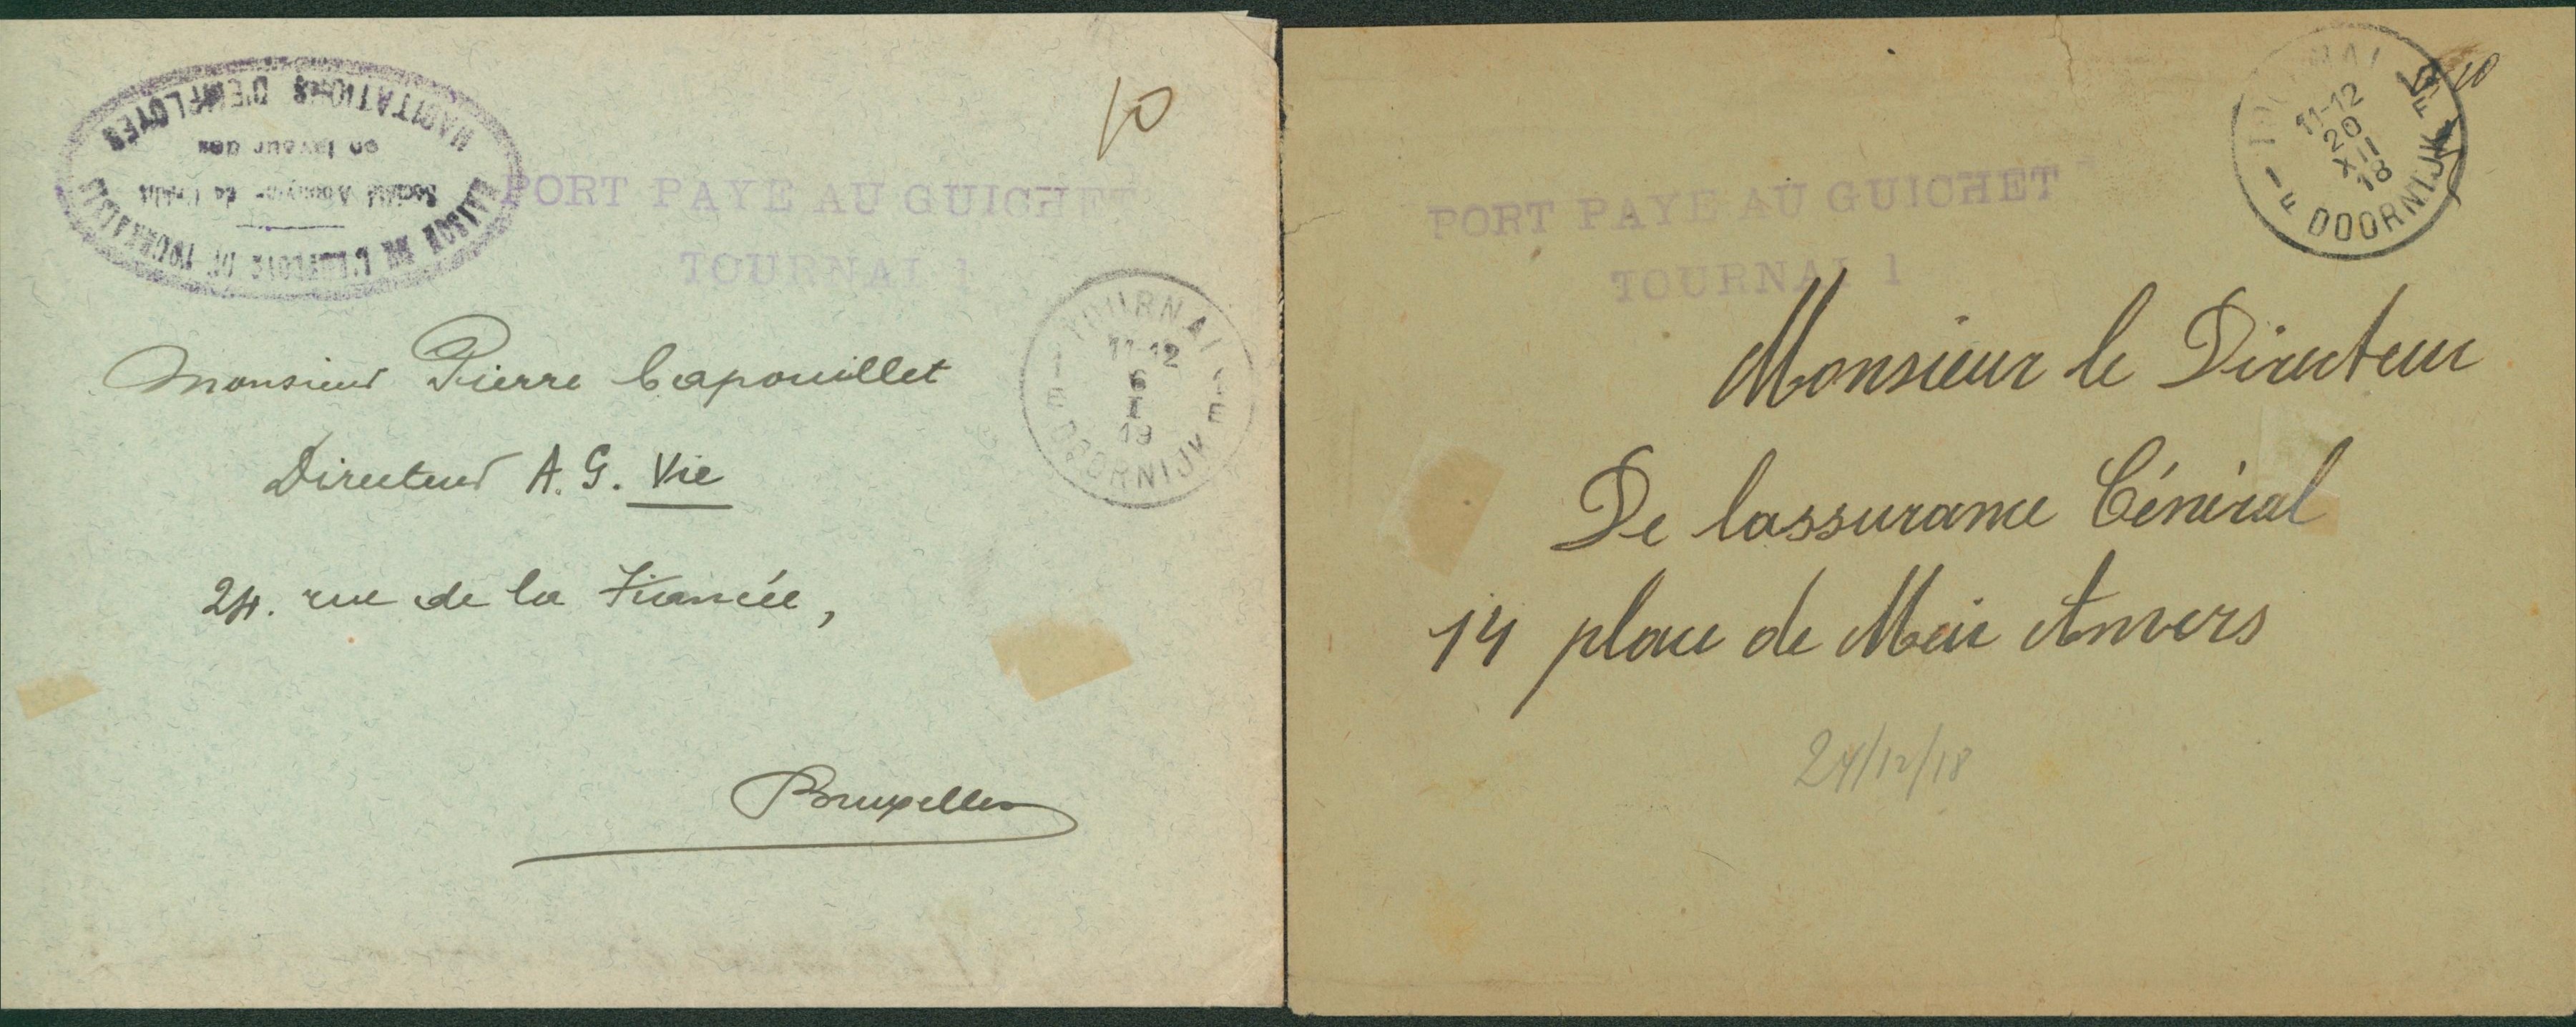 MAISON DE L'EMPLOYÉ DE TOURNAI
Société Anonyme de Crédit
en faveur des
HABITATIONS D'EMPLOYÉS
10
PORT PAYE AU GUICHET
TOURNAI 1
TOURNAI
11-12
6
I
19
1E DOORNIJK 1E
Monsieur Pierre Capouillet
Directeur A. G. Vie
24. rue de la Fiancée,
Bruxelles
10
TOURNAI
11-12
20
XII
18
1F DOORNIJK 1F
PORT PAYE AU GUICHET
TOURNAI 1
Monsieur le Directeur
De lassurance Général
14 place de Meir Anvers
24/12/18